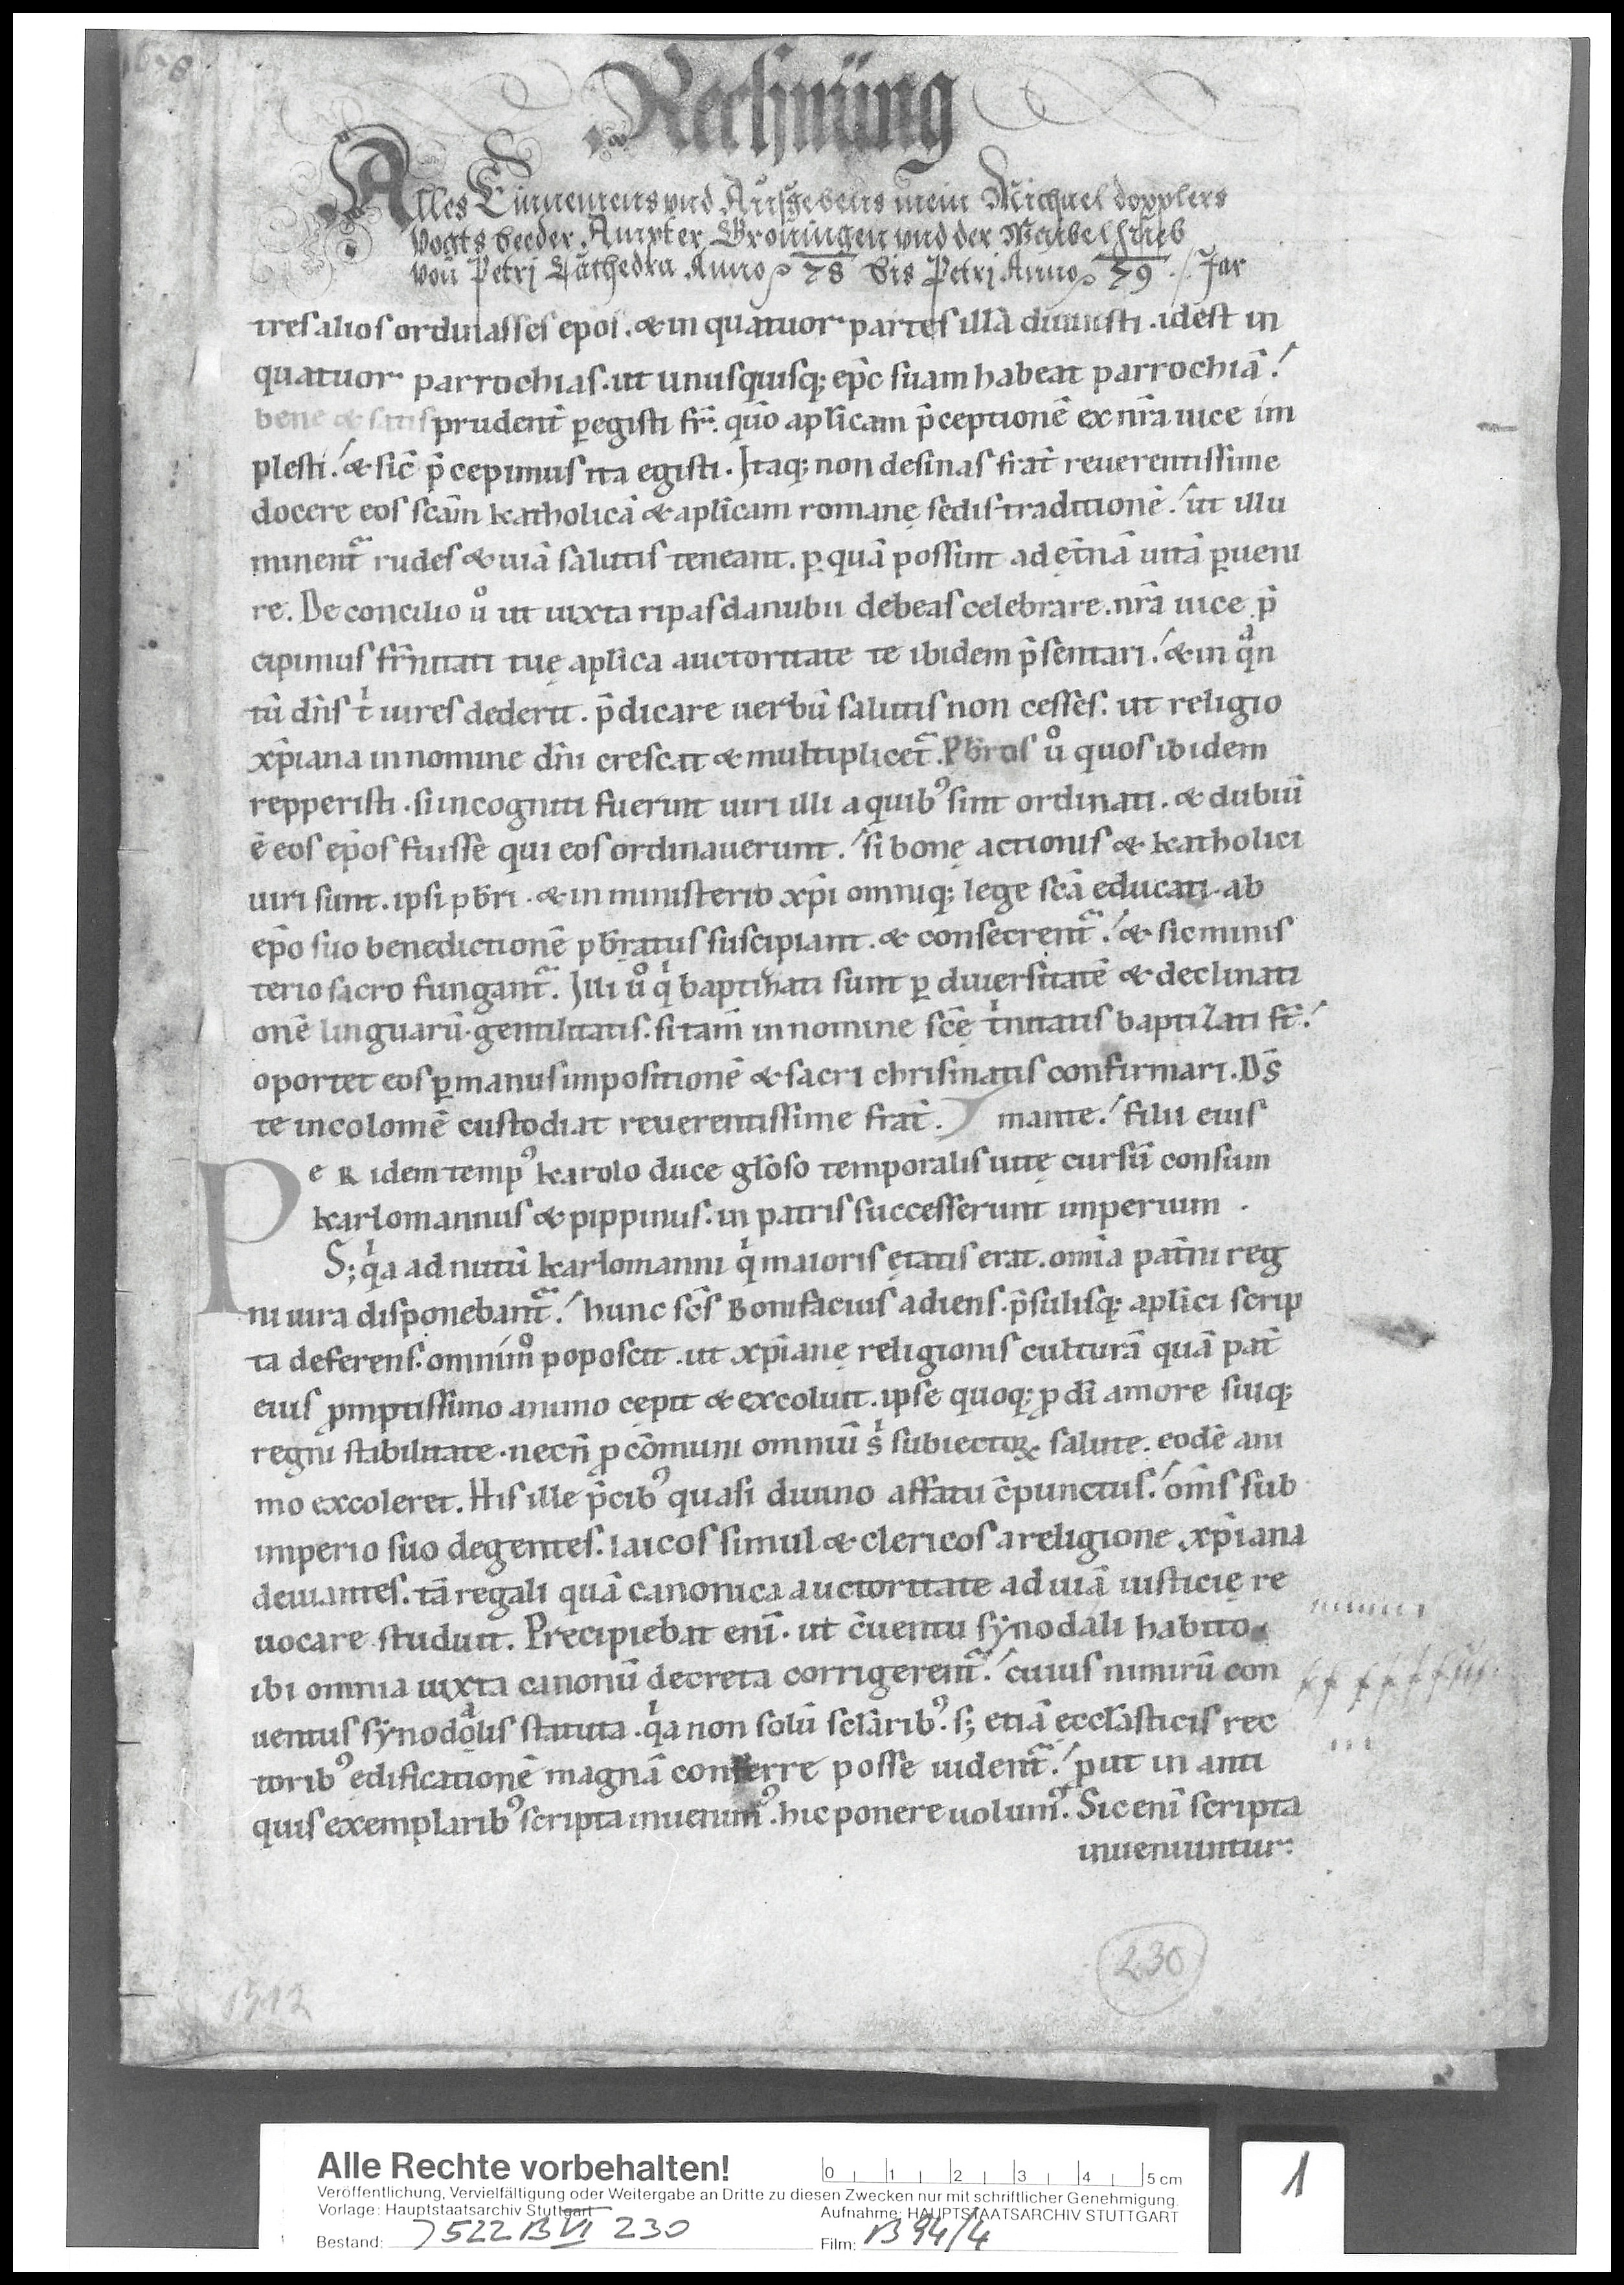 Rechnüng
Alles Einnemens vnd Außgebens mein Michael dopplers
Vogts beeder Ämpter Gröningen vnd der Waibelhüeb
Von Petrj Cathedra Anno 78 bis Petrj Anno 79. Jar
tres alios ordinasses epos. & in quatuor partes illā diuisisti. idest in
quatuor parrochias. ut unusquisq; epc̄ suam habeat parrochiā.
bene & satis prudent̄ ꝑegisti fr̄. quo aplicam p̄ceptionē ex nr̄a uice im
plesti. & sic̄ p̄cepimus ita egisti. Itaq; non desinas frat̄ reuerentissime
docere eos sc̄am katholicā & aplicam romanę sedis traditionē. ut illu
minent̄ rudes & uiā salutis teneant. ꝑ quā possint ad ęt̄nā uitā ꝑueni
re. De concilio uͦ ut iuxta ripas danubii debeas celebrare. nr̄a uice p̄
cipimus fr̄nitati tuę aplica auctoritate te ibidem p̄sentari. & in qͣn
tū dn̄s tͥ uires dederit. p̄dicare uerbū salutis non cesses. ut religio
xp̄iana in nomine dn̄i crescat & multiplicet̄. Pbr̄os uͦ quos ibidem
repperisti. si incogniti fuerint uiri illi a quibꝰ sint ordinati. & dubiū
ē eos ep̄os fuisse qui eos ordinauerunt. si bonę actionis & katholici
uiri sunt. ipsi pbr̄i. & in ministerio xp̄i omniq; lege sc̄a educati. ab
ep̄o suo benedictionē pbr̄atus suscipiant. & consecrent̄. & sic minis
terio sacro fungant̄. Illi uͦ qͥ baptizati sunt ꝑ diuersitatē & declinati
onē linguarū gentilitatis. si tam̄ in nomine sc̄ę tͥnitatis baptizati st̄.
oportet eos ꝑ manus impositionē & sacri chrismatis confirmari. Ds̄
te incolomē custodiat reuerentissime frat̄. mante. filii eius
PeR idem tempꝰ karolo duce gl̄oso temporalis uitę cursū consum
karlomannus & pippinus. in patris successerunt imperium.
S; qͥa ad nutū karlomanni qͥ maioris ętatis erat. omīa pat̄ni reg
ni iura disponebant̄. hunc sc̄s Bonifacius adiens. p̄sulisq; aplici scrip
ta deferens. omnimͦ poposcit. ut xp̄ianę religionis culturā quā pat̄
eius ꝓmptissimo animo cępit & excoluit. ipse quoq; ꝓ dī amore suiq;
regni stabilitate. necn̄ ꝓ cōmuni omniū sͥ subiectoꝝ salute. eodē ani
mo excoleret. His ille p̄cibꝰ quasi diuino affatu c̄punctus. om̄s sub
imperio suo degentes. laicos simul & clericos a religione xp̄iana
deuiantes. tā regali quā canonica auctoritate ad uiā iusticię re
uocare studuit. Precipiebat enī. ut c̄uentu synodali habito
ibi omnia iuxta canonū decreta corrigerent̄. cuius nimirū con
uentus synodalis statuta. qͥa non solū sclaribꝰ. s; etiā ecclasticis rec
toribꝰ edificationē magnā conferre posse uident̄. ꝓut in anti
quis exemplaribꝰ scripta inuenimꝰ. hic ponere uolumꝰ. Sic enī scripta
inueniuntur.
230
1512
Alle Rechte vorbehalten!
0 1 2 3 4 5 cm
Veröffentlichung, Vervielfältigung oder Weitergabe an Dritte zu diesen Zwecken nur mit schriftlicher Genehmigung.
Vorlage: Hauptstaatsarchiv Stuttgart
Aufnahme: HAUPTSTAATSARCHIV STUTTGART
Bestand: J 522 B VI 230
Film: B 94/4
1